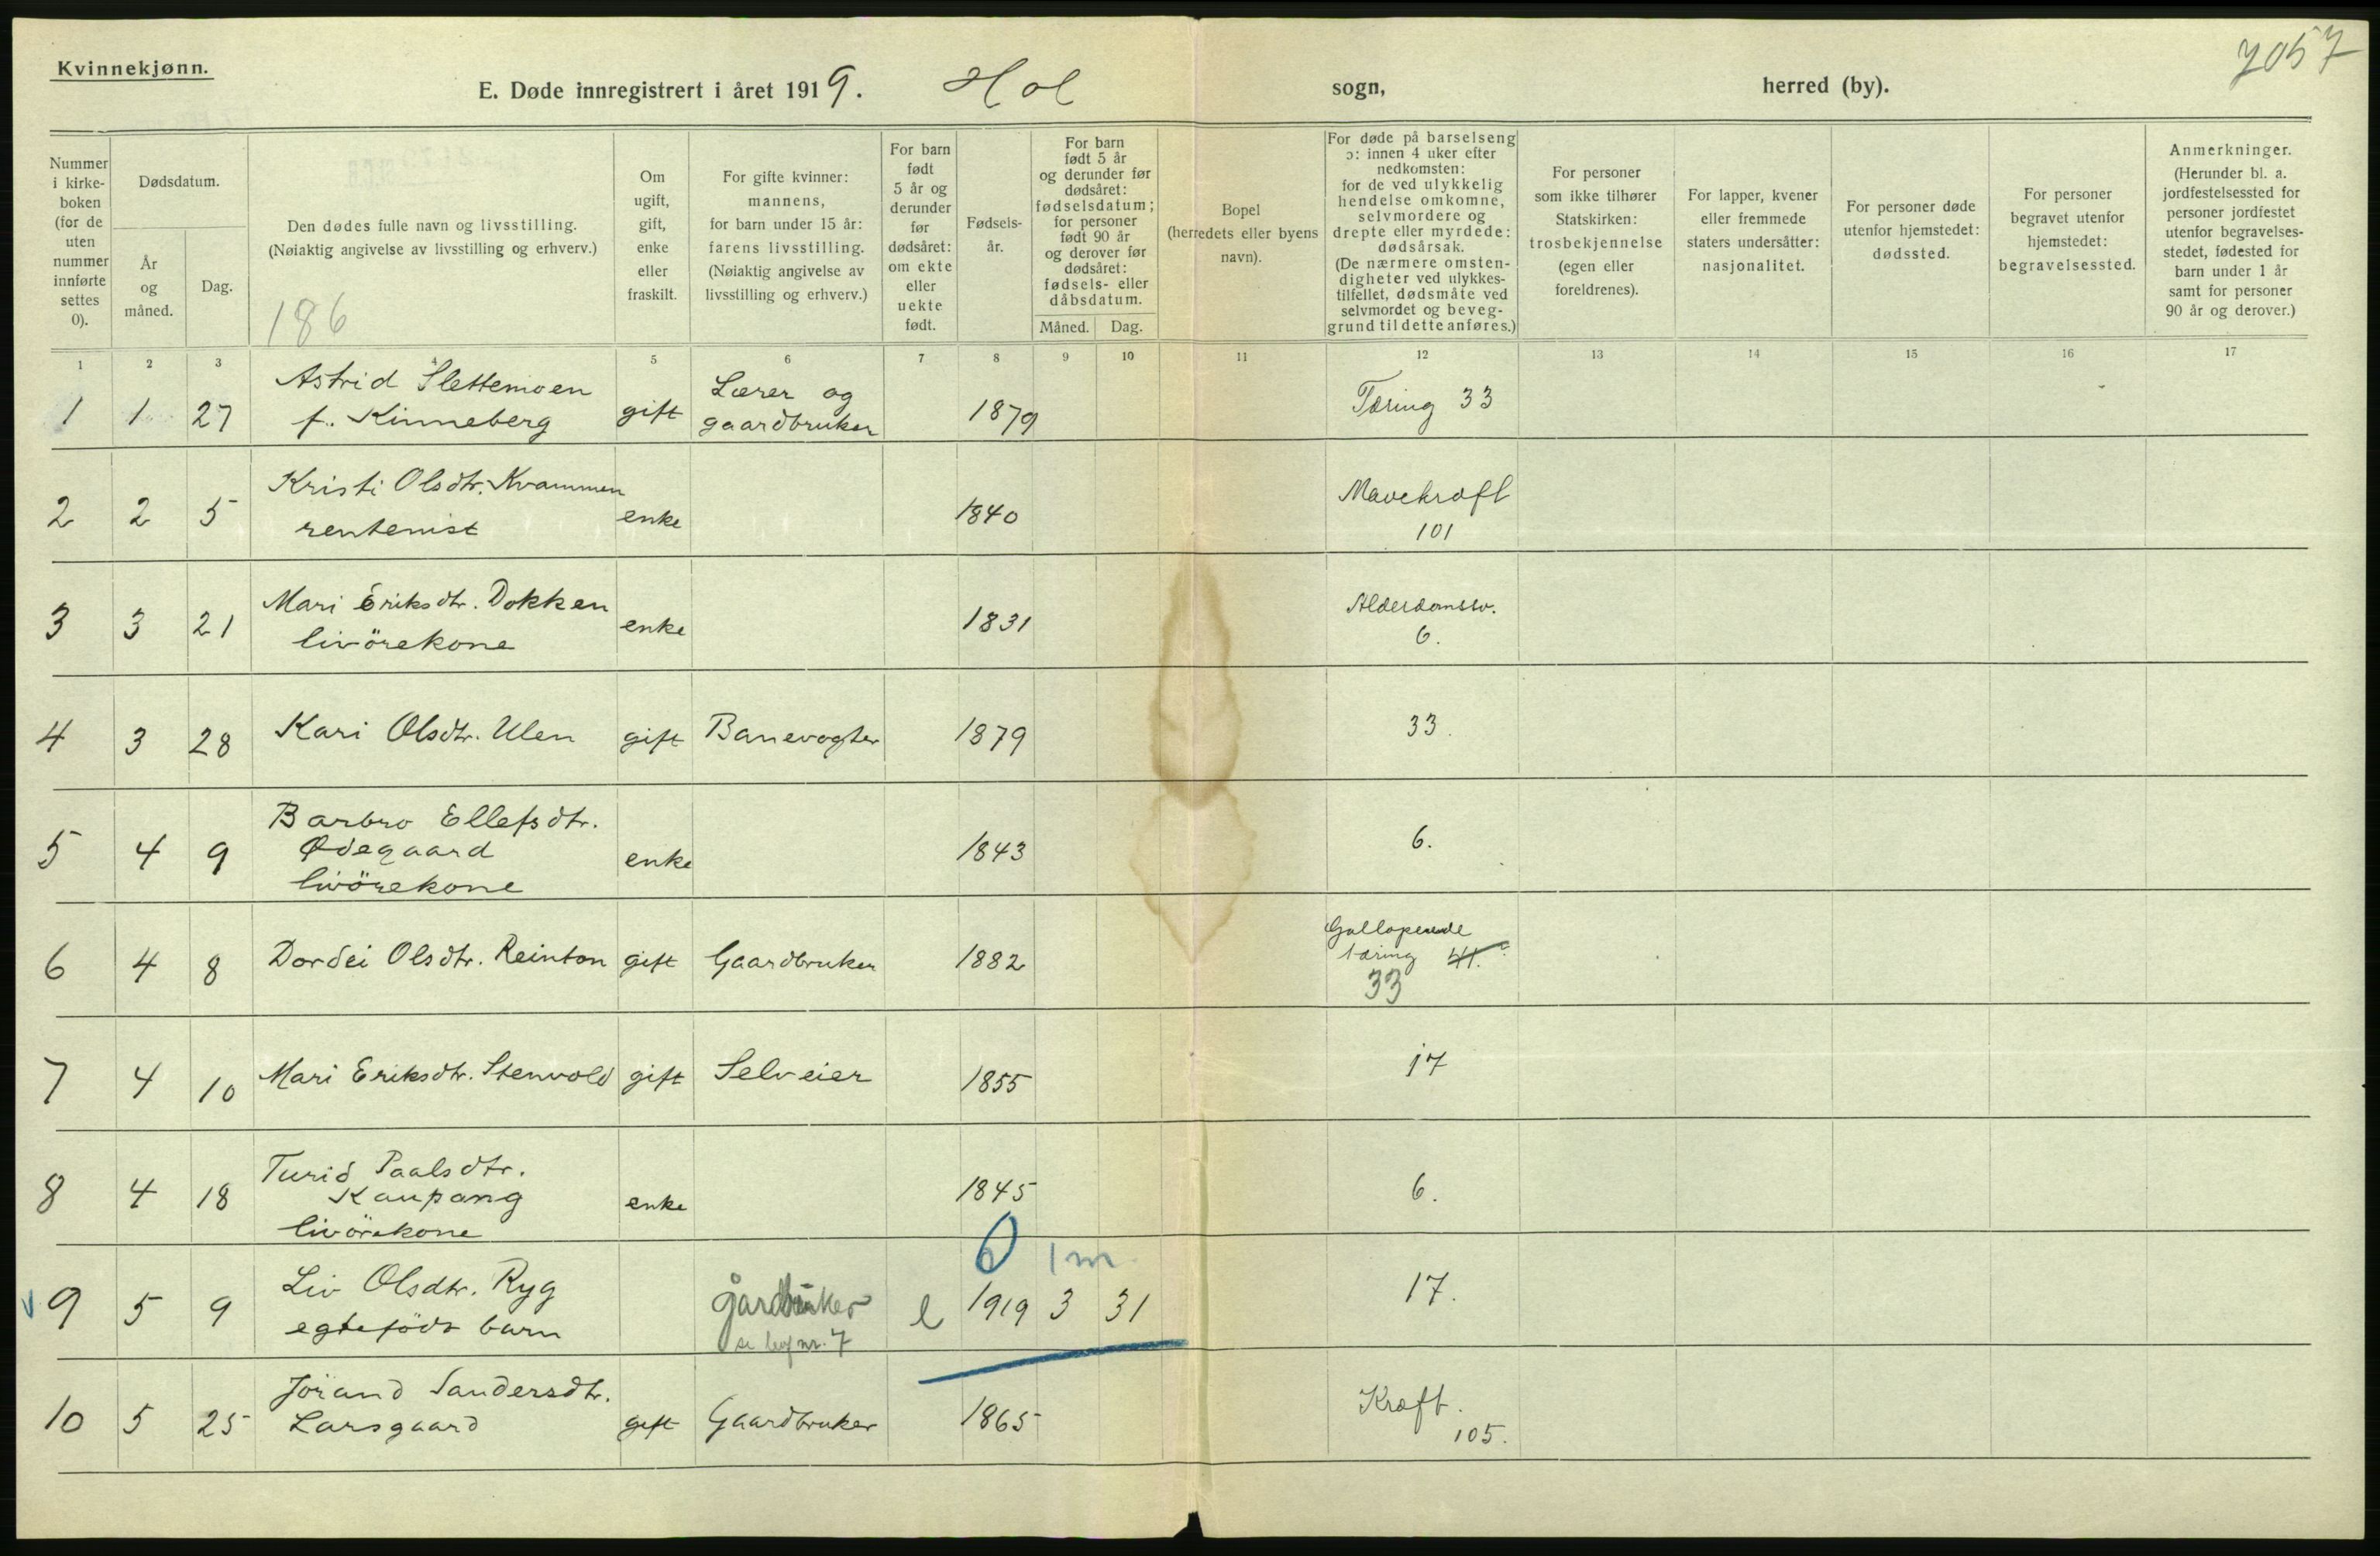 Kvinnekjønn.
7057
E. Døde innregistrert i året 1919. Hol sogn, herred (by).
Nummer i kirke- boken (for de uten nummer innførte settes 0).
Dødsdatum.
År og måned.
Dag.
Den dødes fulle navn og livsstilling.
(Nøiaktig angivelse av livsstilling og erhverv.)
186
Om ugift, gift, enke eller fraskilt.
For gifte kvinner: mannens, for barn under 15 år: farens livsstilling. (Nøiaktig angivelse av livsstilling og erhverv.)
For barn født 5 år og derunder før dødsåret: om ekte eller uekte født.
Fødsels- år.
For barn født 5 år og derunder før dødsåret: fødselsdatum; for personer født 90 år og derover før dødsåret: fødsels- eller dåbsdatum.
Måned. Dag.
Bopel (herredets eller byens navn).
For døde på barselseng ɔ: innen 4 uker efter nedkomsten: for de ved ulykkelig hendelse omkomne, selvmordere og drepte eller myrdede: dødsårsak. (De nærmere omsten- digheter ved ulykkes- tilfellet, dødsmåte ved selvmordet og beveg- grund til dette anføres.)
For personer som ikke tilhører Statskirken: trosbekjennelse (egen eller foreldrenes).
For lapper, kvener eller fremmede staters undersåtter: nasjonalitet.
For personer døde utenfor hjemstedet: dødssted.
For personer begravet utenfor hjemstedet: begravelsessted.
Anmerkninger. (Herunder bl. a. jordfestelsessted for personer jordfestet utenfor begravelses- stedet, fødested for barn under 1 år samt for personer 90 år og derover.)
1 2 3 4 5 6 7 8 9 10 11 12 13 14 15 16 17
Astrid Slettemoen Lærer og
1 1 27 f. Kinneberg gift gaardbruker 1879 Tæring 33
Kristi Olsdtr. Kvammen Mavekræft
2 2 5 rentenist enke 1840 101
Mari Eriksdtr. Dokken Alderdomssv.
3 3 21 livörekone enke 1831 6.
4 3 28 Kari Olsdtr. Ulen gift Banevogter 1879 33.
Barbro Ellefsdtr.
5 4 9 Ødegaard enke 1843 6.
livörekone
Gallopende
6 4 8 Dordei Olsdtr. Reinton gift Gaardbruker 1882 tæring 41.
33
7 4 10 Mari Eriksdtr. Stenvold gift Selveier 1855 17
Turid Paalsdtr.
8 4 18 Kaupang enke 1845 6.
livörekone
0 1 m.
Liv Olsdtr. Ryg
9 5 9 egtefödt barn gårdbruker e 1919 3 31 17.
nr. 7
Jörand Sandersdtr. Kræft.
10 5 25 Larsgaard gift Gaardbruker 1865 105.